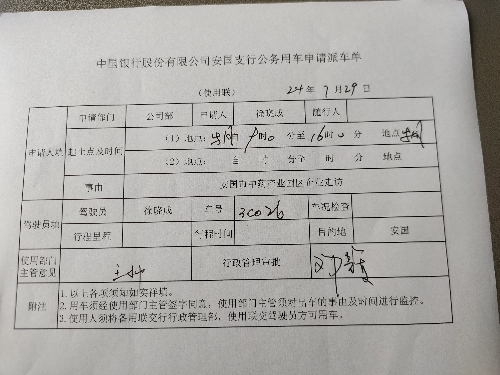 中国银行股份有限公司安国支行公务用车申请派车单
（使用联） 24年7月29日
申请部门 公司部 申请人 徐晓成 随行人
申请人填 起止点及时间 （1）地点: 时0分至16时0分 地点
（2）地点: 时 分至 时 分 地点
事由 安国市中药产业园区企业走访
驾驶员填 驾驶员 徐晓成 车号 3C026 车况检查
行程里程 行程时间 目的地 安国
使用部门主管意见 行政管理审批
附注 1.以上各项须如实详填。
2.用车须经使用部门主管签字同意，使用部门主管须对出车的事由及时间进行监控。
3.使用人须将备用联交行政管理部，使用联交驾驶员方可用车。